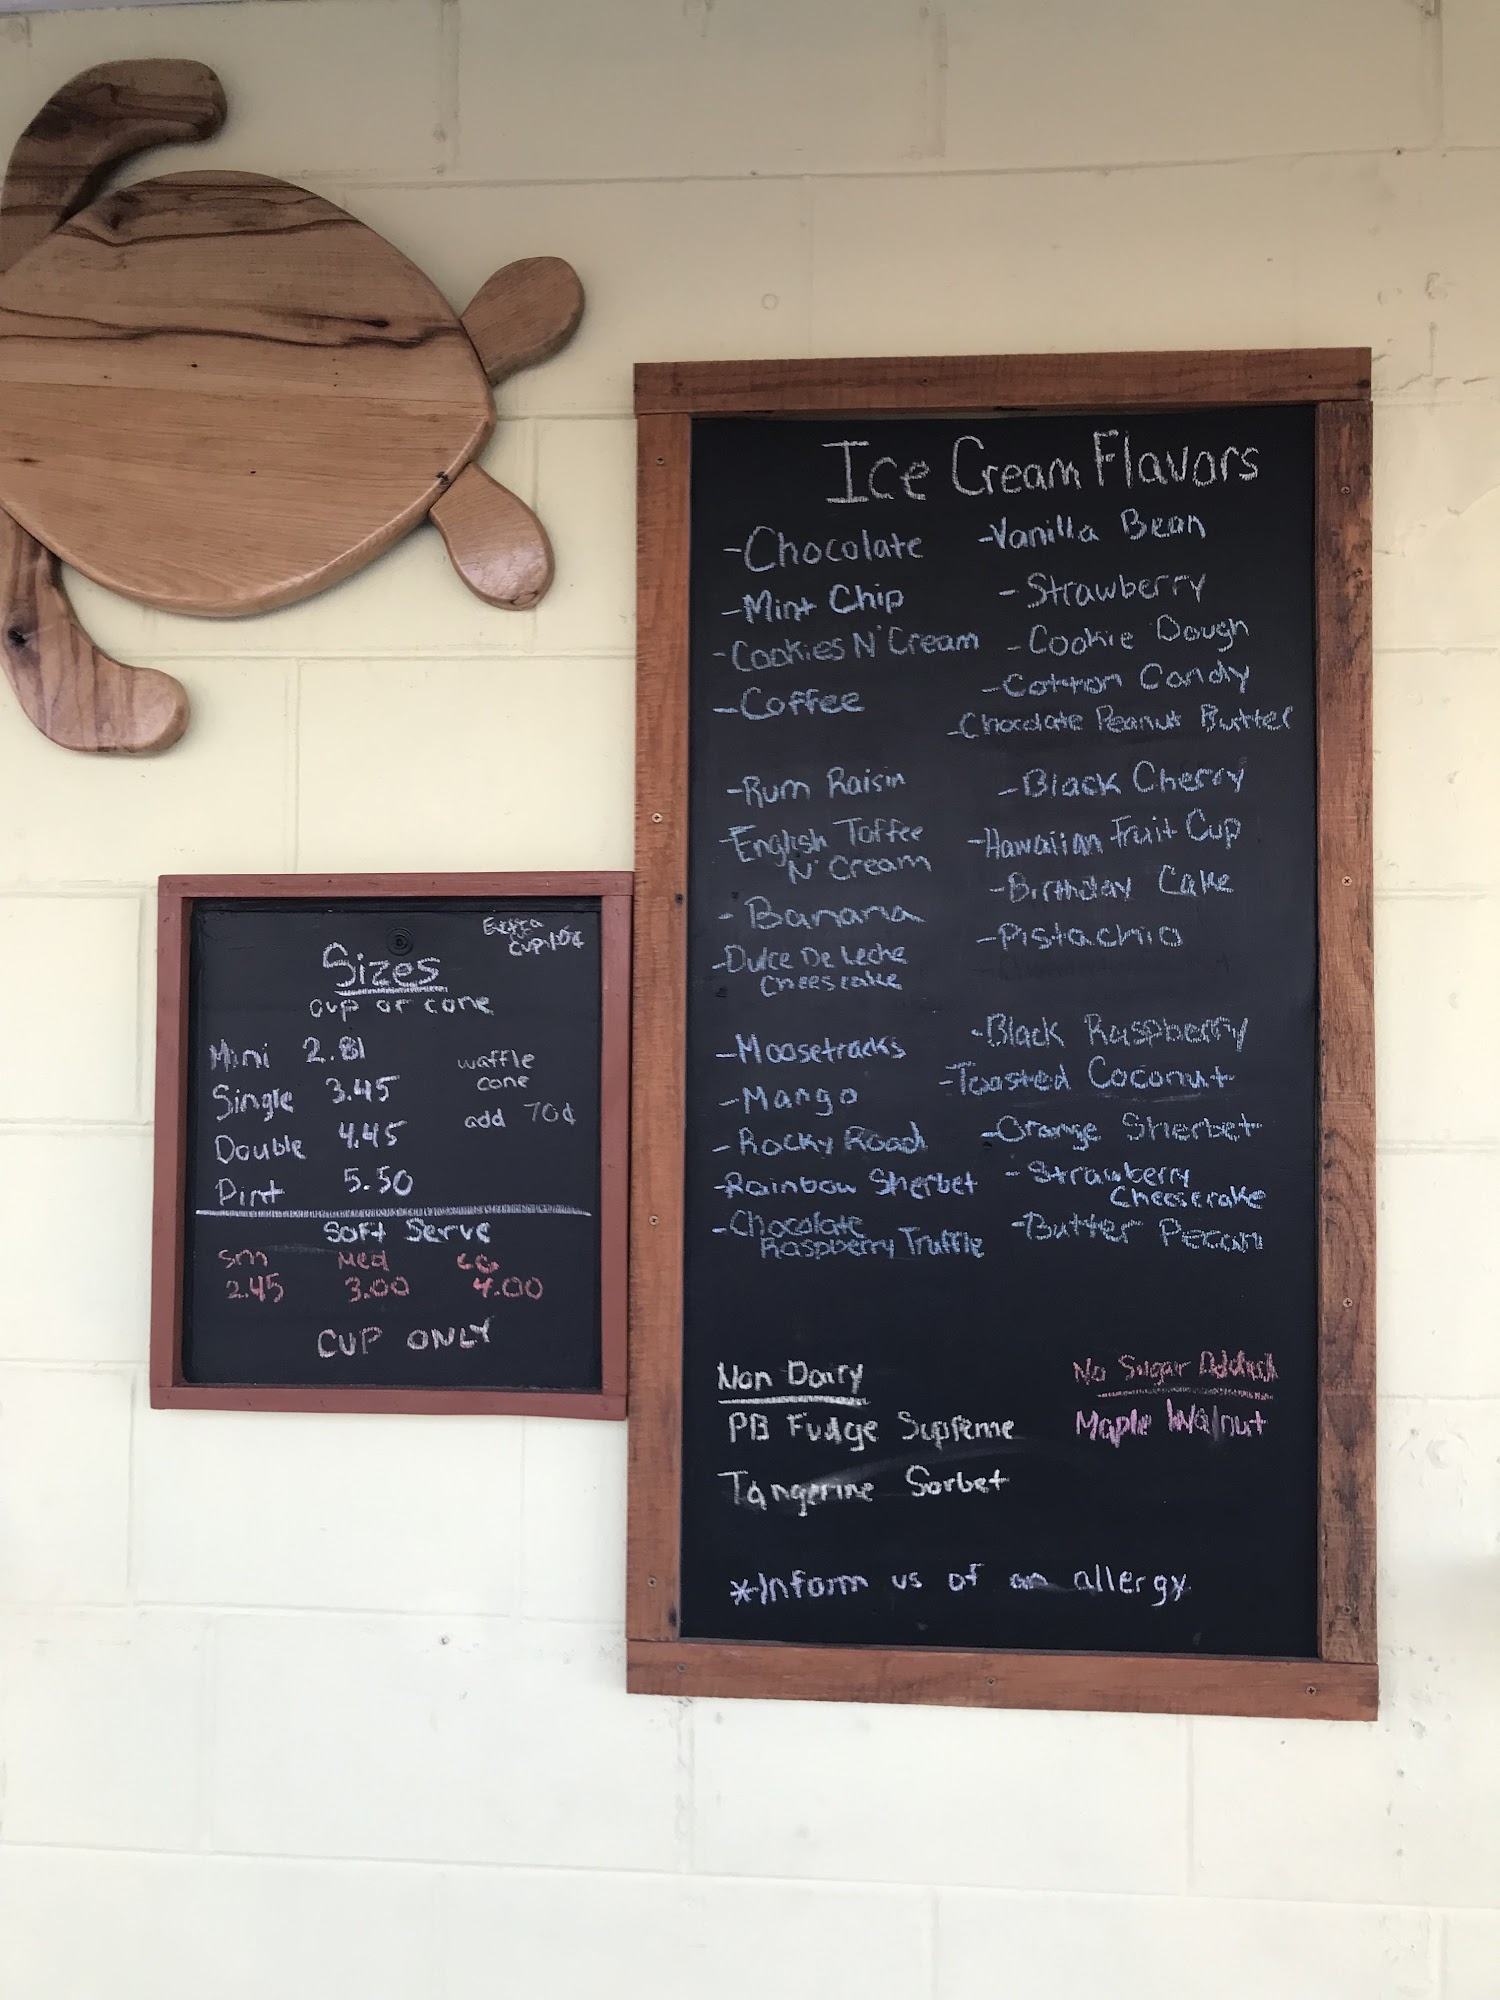 Ice Cream Flavors
-Chocolate
-Mint Chip
-Cookies N' Cream
-Coffee
-Rum Raisin
-English Toffee
N' Cream
-Banana
-Dulce De Leche
Cheesecake
-Moosetracks
-Mango
-Rocky Road
-Rainbow Sherbet
-Chocolate
Raspberry Truffle
-Vanilla Bean
-Strawberry
-Cookie Dough
-Cotton Candy
-Chocolate Peanut Butter
-Black Cherry
-Hawaiian Fruit Cup
-Birthday Cake
-Pistachio
-Black Raspberry
-Toasted Coconut
-Orange Sherbet
-Strawberry
Cheesecake
-Butter Pecan
Non Dairy
PB Fudge Supreme
Tangerine Sorbet
No Sugar Added
Maple Walnut
*Inform us of an allergy
Extra
Cup
Sizes
cup or cone
Mini 2.81
Single 3.45
Double 4.45
Pint 5.50
waffle
cone
add 70¢
Soft Serve
Sm Med LG
2.45 3.00 4.00
CUP ONLY